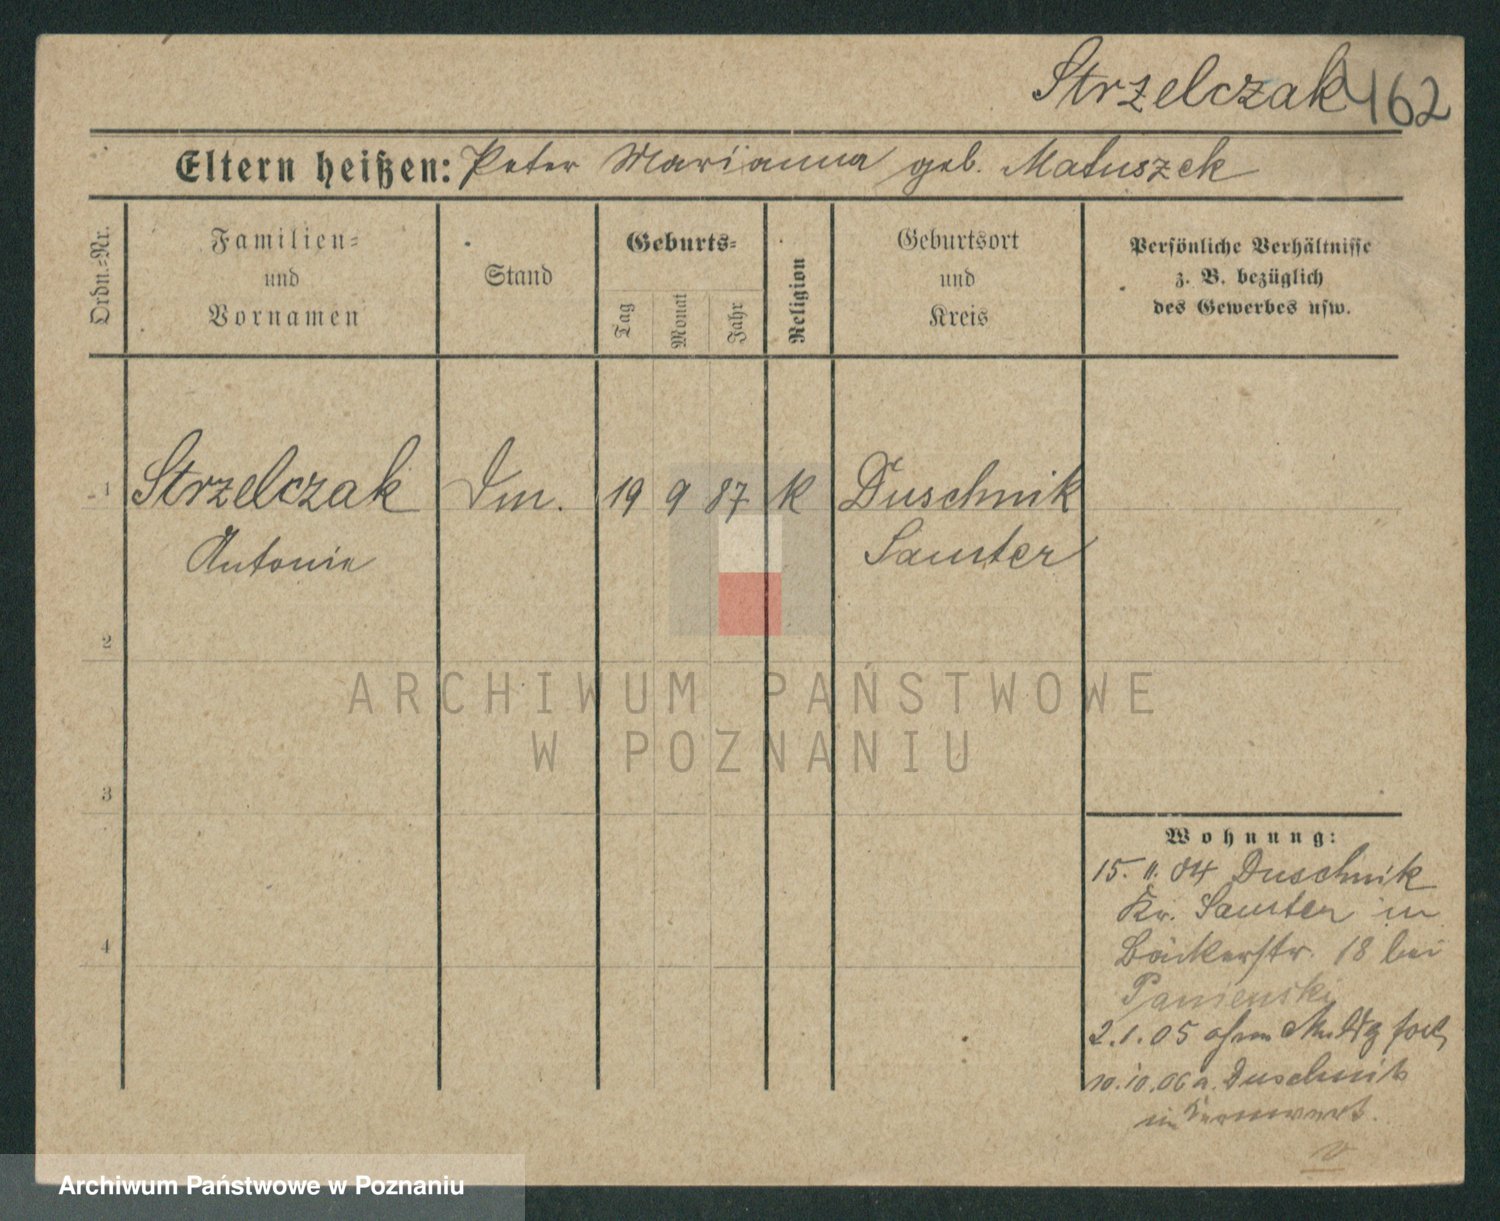 Strzelczak 462
Eltern heißen: Peter Marianna geb. Matuszek
Ordn.-Nr.
Familien-
und
Vornamen
Stand
Geburts-
Tag
Monat
Jahr
Religion
Geburtsort
und
Kreis
Persönliche Verhältnisse
z. B. bezüglich
des Gewerbes usw.
1 Strzelczak 19 9 87 K Duschnik
Antonie Samter
2
3
4
Wohnung:
15. 11. 04 Duschnik
Kr. Samter in
Bäckerstr. 18 bei
2.1.05 ohne
10.10.06 a. Duschnik
in
ARCHIWUM PAŃSTWOWE
W POZNANIU
Archiwum Państwowe w Poznaniu